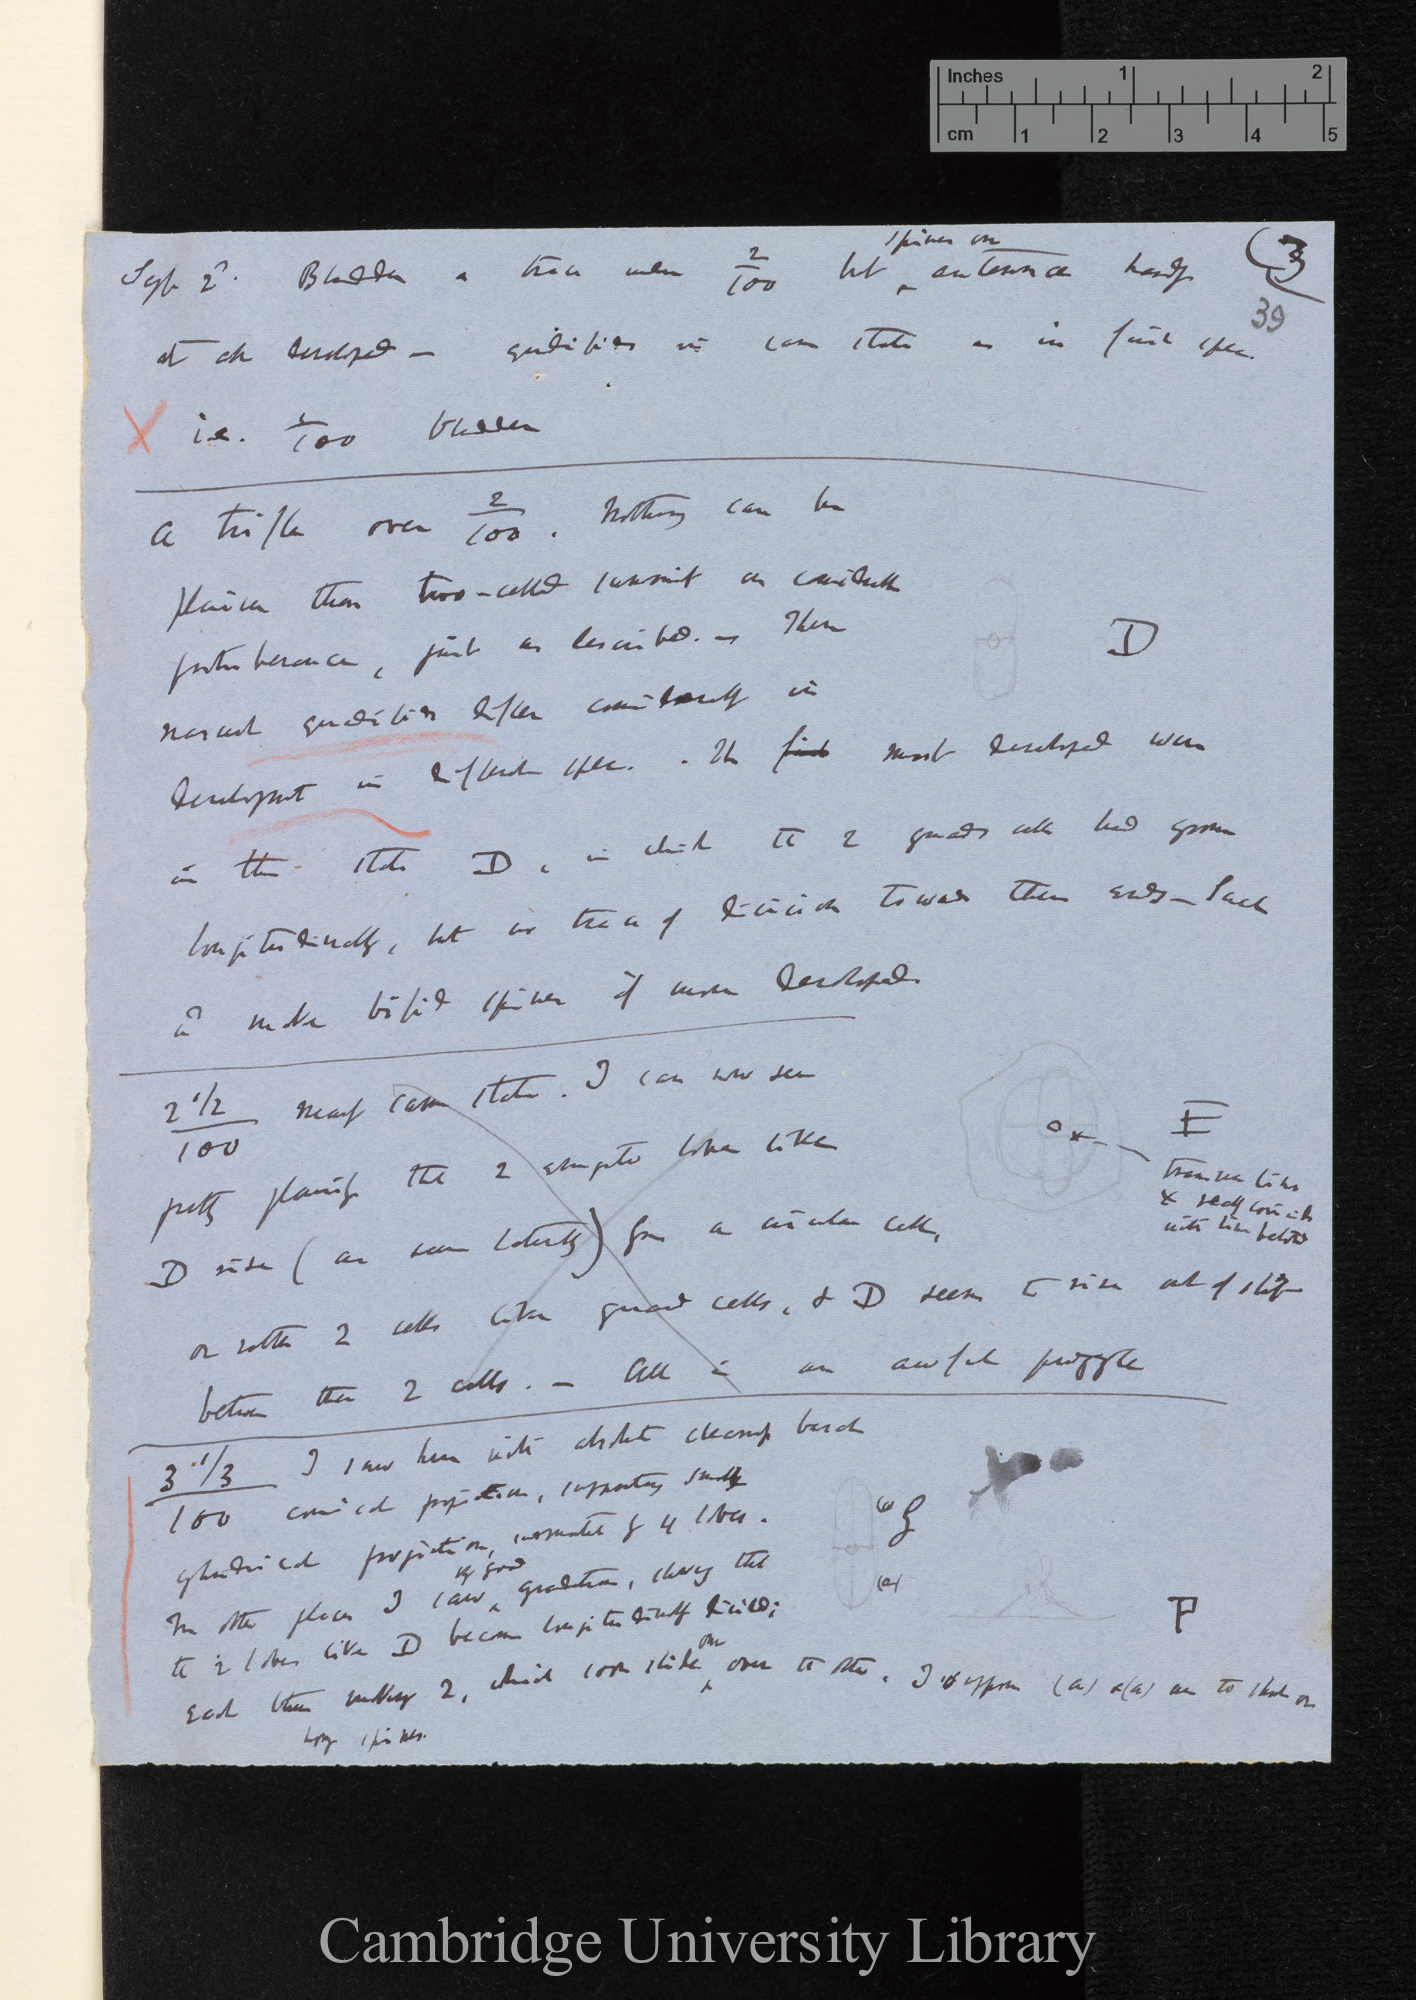 Inches 1 2
cm 1 2 3 4 5
spines on
Sept 2ᵈ. Bladder a trace when 2/100 but ^ antennæ hardly (3
39
at all developed — quadrifids in same state as in first spec.
X i.e. 2/100 bladder
A trifle over 2/100. Nothing can be
plainer than two-celled summit on
protuberance, just as described. — These
nascent quadrifids differ considerably in
D
development in different spec. . The first most developed were
in the state D, in which the 2 guard cells had grown
longitudinally, but no trace of division towards their ends — Such
wᵈ make bifid spines if more developed
2 1/2 /100 nearly same state. I can now see
pretty plainly the 2 lobes like
E
transverse line
x really coincides
with line below
D rise (as seen laterally) from a circular cell,
or rather 2 cells like guard cells, & D seems to rise out of slit
between these 2 cells. — All is an awful puzzle
3 1/3 /100 I saw here with absolute clearness basal
conical projection, supporting small
cylindrical projection, surmounted by 4 lobes.
(a) g
(a)
In other places I saw ^ gradation, showing that
the 2 lobes like D become longitudinally divided;
F
one
each then making 2, which soon slide ^ over the other. I suppose (a) & (a) are to shoot on
long spines.
Cambridge University Library